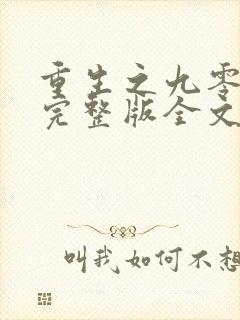 重生之九零
完整版全文
叫我如何不想